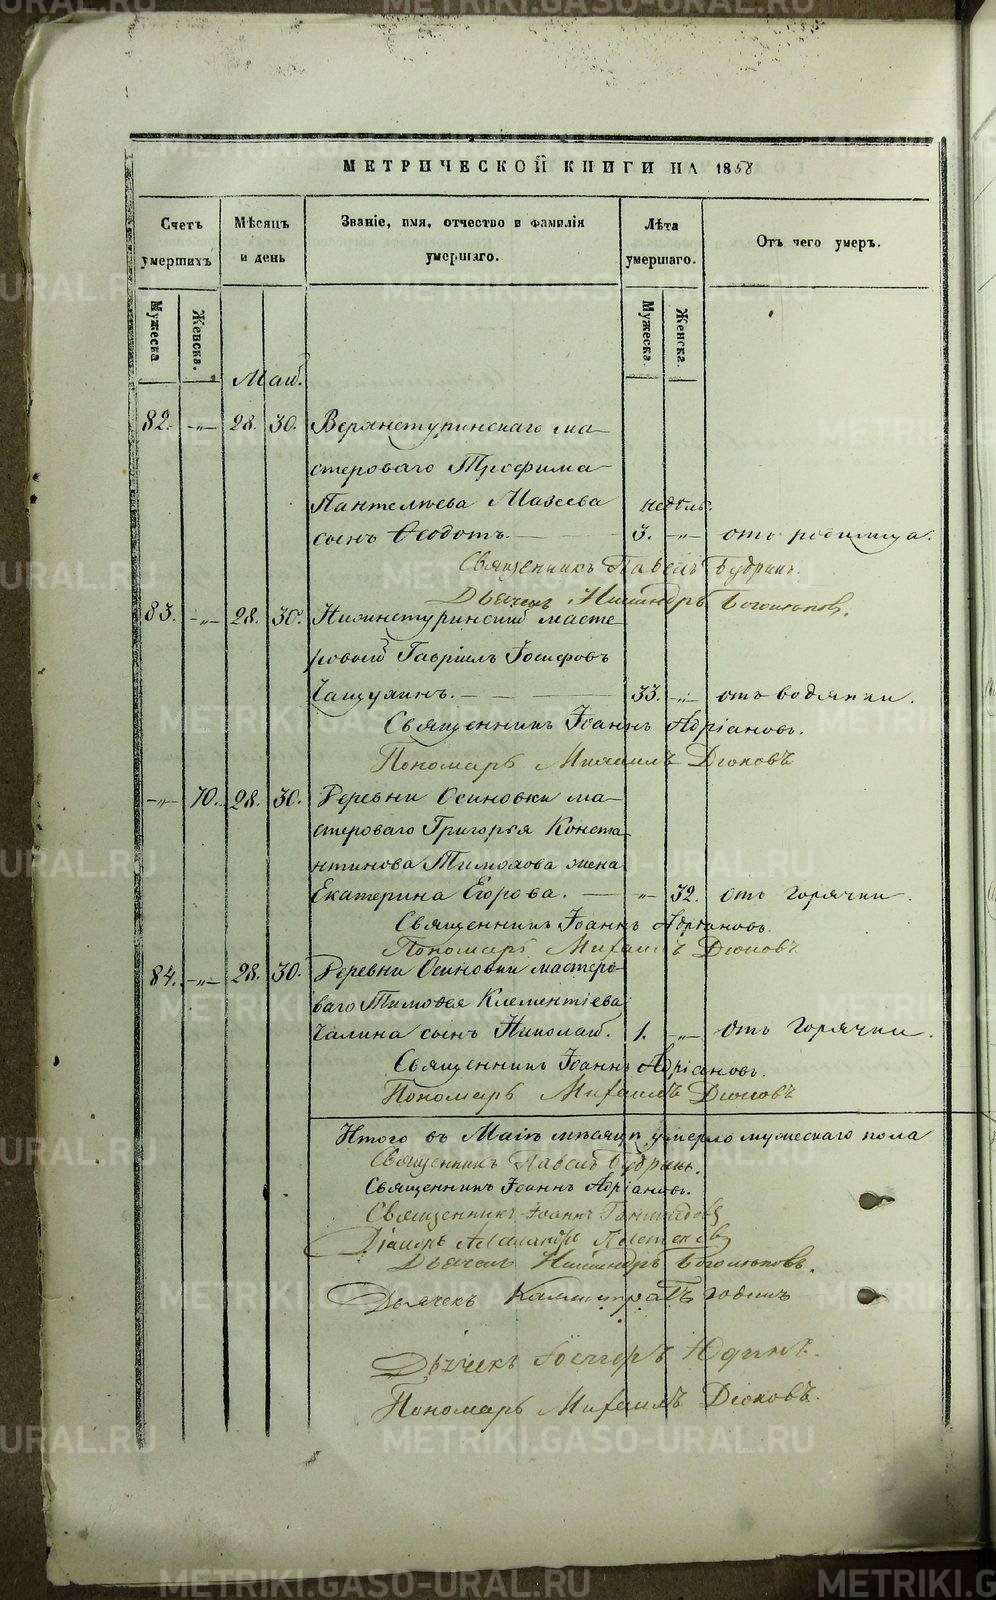 МЕТРИЧЕСКОЙ КНИГИ НА 1858
Счетъ умершихъ
Мѣсяцъ и день
Званіе, имя, отчество и фамилія умершаго.
Лѣта умершаго.
Отъ чего умеръ.
Мужеска
Женска.
Мужеска.
Женска.
Маій.
82. -„- 28. 30. Верхнетуринскаго ма-
стероваго Трофима
Пантелѣева Мазеева недѣль.
сынъ Ѳеодотъ. 3. -„- отъ родимца.
Священникъ Павелъ Будринъ.
Дьячекъ Никандръ Боголюбовъ.
83. -„- 28. 30. Нижнетуринскій масте-
ровый Гавріилъ Іосифовъ
Чащухинъ. 33. -„- отъ водянки.
Священникъ Іоаннъ Адріановъ.
Пономарь Михаилъ Дюковъ
-„- 70. 28. 30. Деревни Осиновки ма-
стероваго Григорья Конста-
нтинова Тимохова жена
Екатерина Егорова. -„- 32. отъ горячки.
Священникъ Іоаннъ Адріановъ.
Пономарь Михаилъ Дюковъ
84. -„- 28. 30. Деревни Осиновки мастеро-
ваго Тимофея Клементіева
Чалина сынъ Николай. 1. -„- отъ горячки.
Священникъ Іоаннъ Адріановъ.
Пономарь Михаилъ Дюковъ
Итого въ Маіѣ мѣсяцѣ умерло мужескаго пола
Священникъ Павелъ Будринъ.
Священникъ Іоаннъ Адріановъ.
Священникъ Іоаннъ
Діаконъ
Дьячекъ Никандръ Боголюбовъ.
Дьячекъ Калистратъ
Дьячекъ Юдинъ.
Пономарь Михаилъ Дюковъ.
METRIKI.GASO-URAL.RU